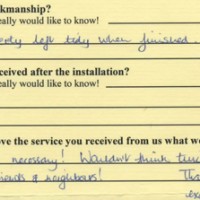 rkmanship?
eally would like to know!
left tidy when finished.
ceived after the installation?
eally would like to know!
ove the service you received from us what wo
necessary! Wouldn't think
neighbours!